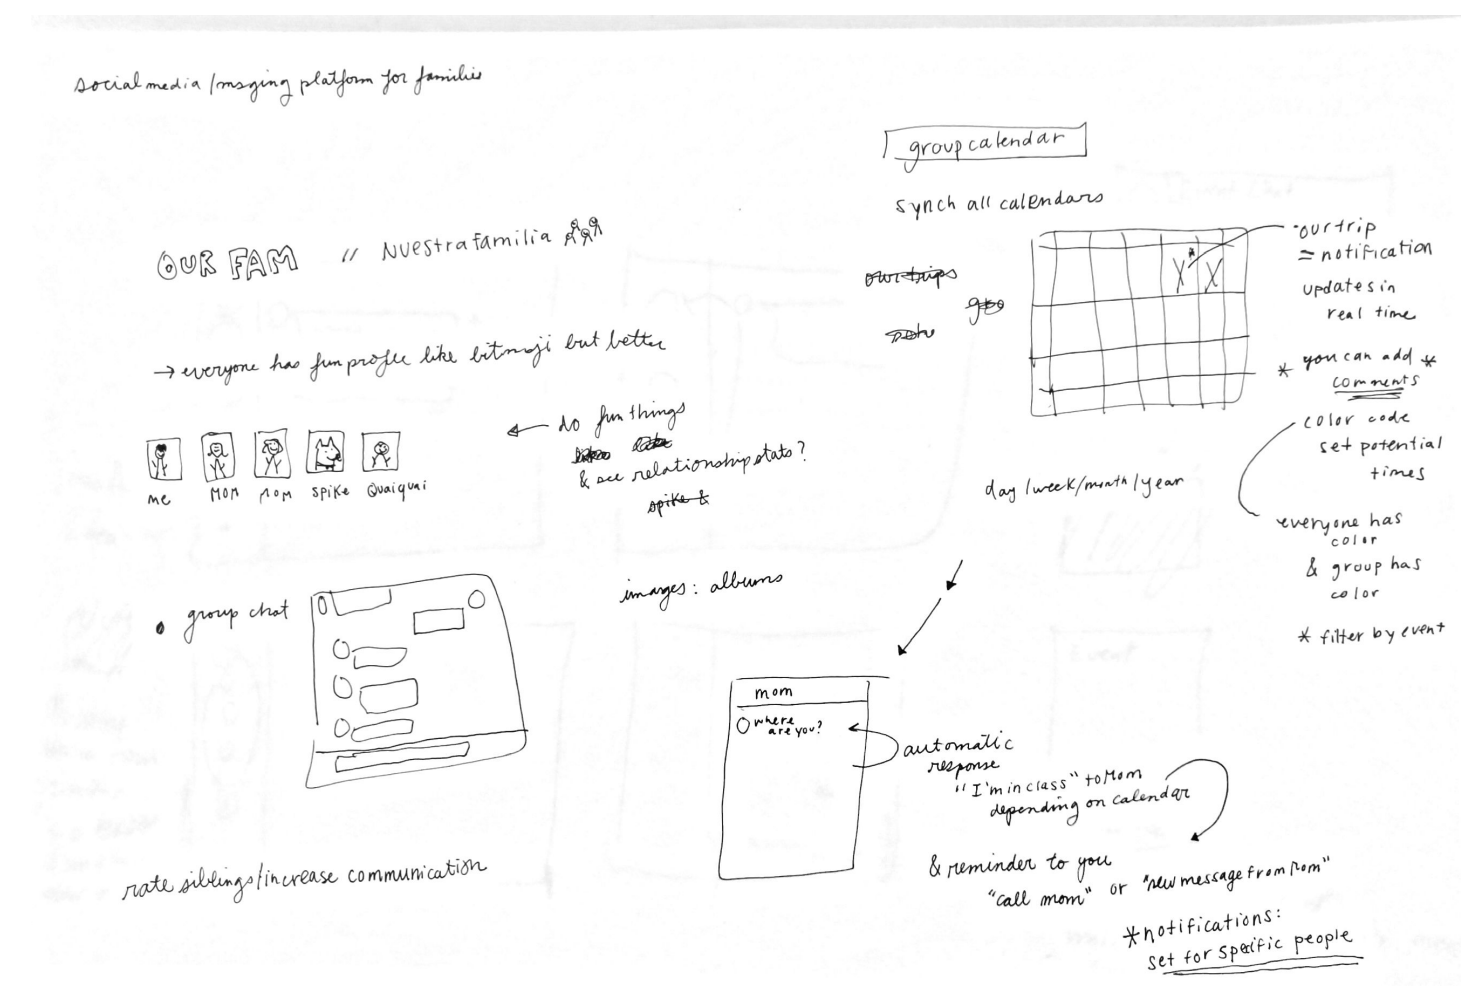 social media / msging platform for families
OUR FAM // Nuestra familia
→ everyone has fun profile like bitmoji but better
me
MOM
MOM
Spike
Quaiquai
← do fun things
& see relationship stats?
spike &
images: albums
• group chat
rate siblings/increase communication
group calendar
synch all calendars
our trips
our trip
= notification
updates in
real time
* you can add *
comments
color code
set potential
times
everyone has
color
& group has
color
* filter by event
day / week / month / year
mom
where
are you?
automatic
response
"I'm in class" to Mom
depending on calendar
& reminder to you
"call mom" or "new message from Mom"
* notifications:
set for specific people